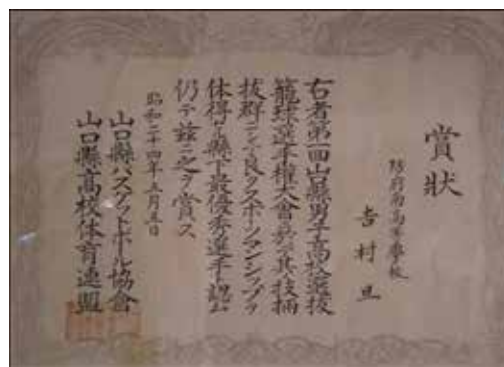 賞狀
防府南高等學校
吉村 旦
右者第一回山口縣男子高校選抜
籠球選手權大會ニ於テ其ノ技柄
抜群ニシテ良クスポーツマンシップヲ
体得シ縣下最優秀選手ト認ム
仍テ茲ニ之ヲ賞ス
昭和二十四年五月五日
山口縣バスケットボール協會
山口縣高校体育連盟